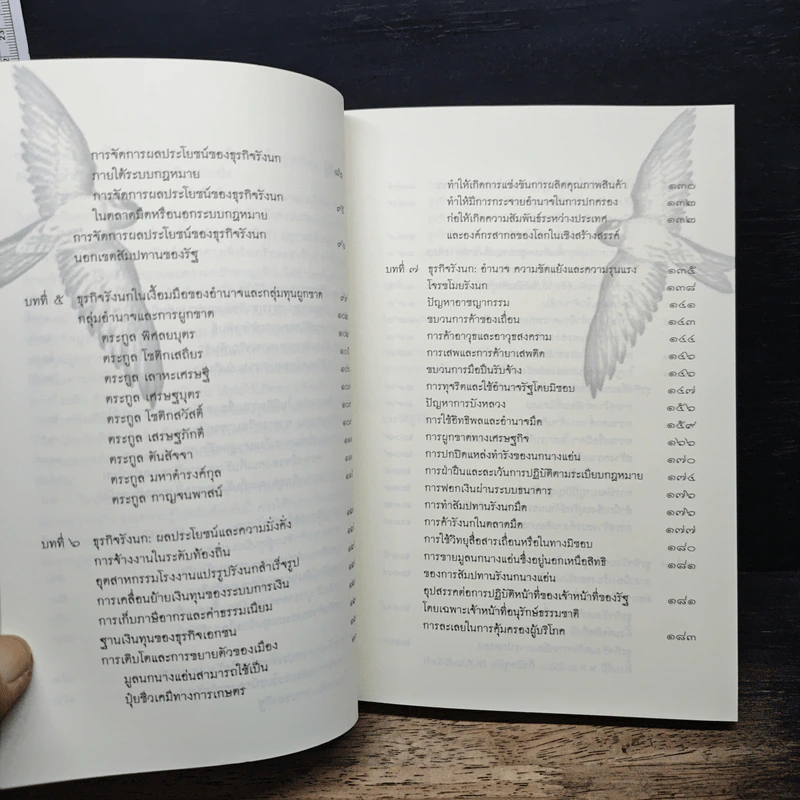 การจัดการผลประโยชน์ของธุรกิจรังนก
ภายใต้ระบบกฎหมาย
การจัดการผลประโยชน์ของธุรกิจรังนก
ในตลาดมืดหรือนอกระบบกฎหมาย
การจัดการผลประโยชน์ของธุรกิจรังนก
นอกเขตสัมปทานของรัฐ
บทที่ ๕ ธุรกิจรังนกในเงื้อมมือของอำนาจและกลุ่มทุนผูกขาด
กลุ่มอำนาจและการผูกขาด
ตระกูล พิศลยบุตร
ตระกูล โชติกเสถียร
ตระกูล เลาหะเศรษฐี
ตระกูล เศรษฐบุตร
ตระกูล โชติกสวัสดิ์
ตระกูล เสรษฐภักดี
ตระกูล ตันสัจจา
ตระกูล มหาดำรงค์กุล
ตระกูล กาญจนพาสน์
บทที่ ๖ ธุรกิจรังนก: ผลประโยชน์และความมั่งคั่ง
การจ้างงานในระดับท้องถิ่น
อุตสาหกรรมโรงงานแปรรูปรังนกสำเร็จรูป
การเคลื่อนย้ายเงินทุนของระบบการเงิน
การเก็บภาษีอากรและค่าธรรมเนียม
ฐานเงินทุนของธุรกิจเอกชน
การเติบโตและการขยายตัวของเมือง
มูลนกนางแอ่นสามารถใช้เป็น
ปุ๋ยชีวเคมีทางการเกษตร
ทำให้เกิดการแข่งขันการผลิตคุณภาพสินค้า ๑๓๐
ทำให้มีการกระจายอำนาจในการปกครอง ๑๓๒
ก่อให้เกิดความสัมพันธ์ระหว่างประเทศ ๑๓๒
และองค์กรสากลของโลกในเชิงสร้างสรรค์
บทที่ ๗ ธุรกิจรังนก: อำนาจ ความขัดแย้งและความรุนแรง ๑๓๕
โจรขโมยรังนก ๑๓๘
ปัญหาอาชญากรรม ๑๔๑
ขบวนการค้าของเถื่อน ๑๔๓
การค้าอาวุธและอาวุธสงคราม ๑๔๔
การเสพและการค้ายาเสพติด ๑๔๖
ขบวนการมือปืนรับจ้าง ๑๔๖
การทุจริตและใช้อำนาจรัฐโดยมิชอบ ๑๔๗
ปัญหาการบังหลวง ๑๕๖
การใช้อิทธิพลและอำนาจมืด ๑๕๙
การผูกขาดทางเศรษฐกิจ ๑๖๖
การปกปิดแหล่งทำรังของนกนางแอ่น ๑๗๐
การฝ่าฝืนและละเว้นการปฏิบัติตามระเบียบกฎหมาย ๑๗๔
การฟอกเงินผ่านระบบธนาคาร ๑๗๖
การทำสัมปทานรังนกมืด ๑๗๖
การค้ารังนกในตลาดมืด ๑๗๗
การใช้วิทยุสื่อสารเถื่อนหรือในทางมิชอบ ๑๘๐
การขายมูลนกนางแอ่นซึ่งอยู่นอกเหนือสิทธิ ๑๘๑
ของการสัมปทานรังนกนางแอ่น
อุปสรรคต่อการปฏิบัติหน้าที่ของเจ้าหน้าที่ของรัฐ ๑๘๑
โดยเฉพาะเจ้าหน้าที่อนุรักษ์ธรรมชาติ
การละเลยในการคุ้มครองผู้บริโภค ๑๘๓